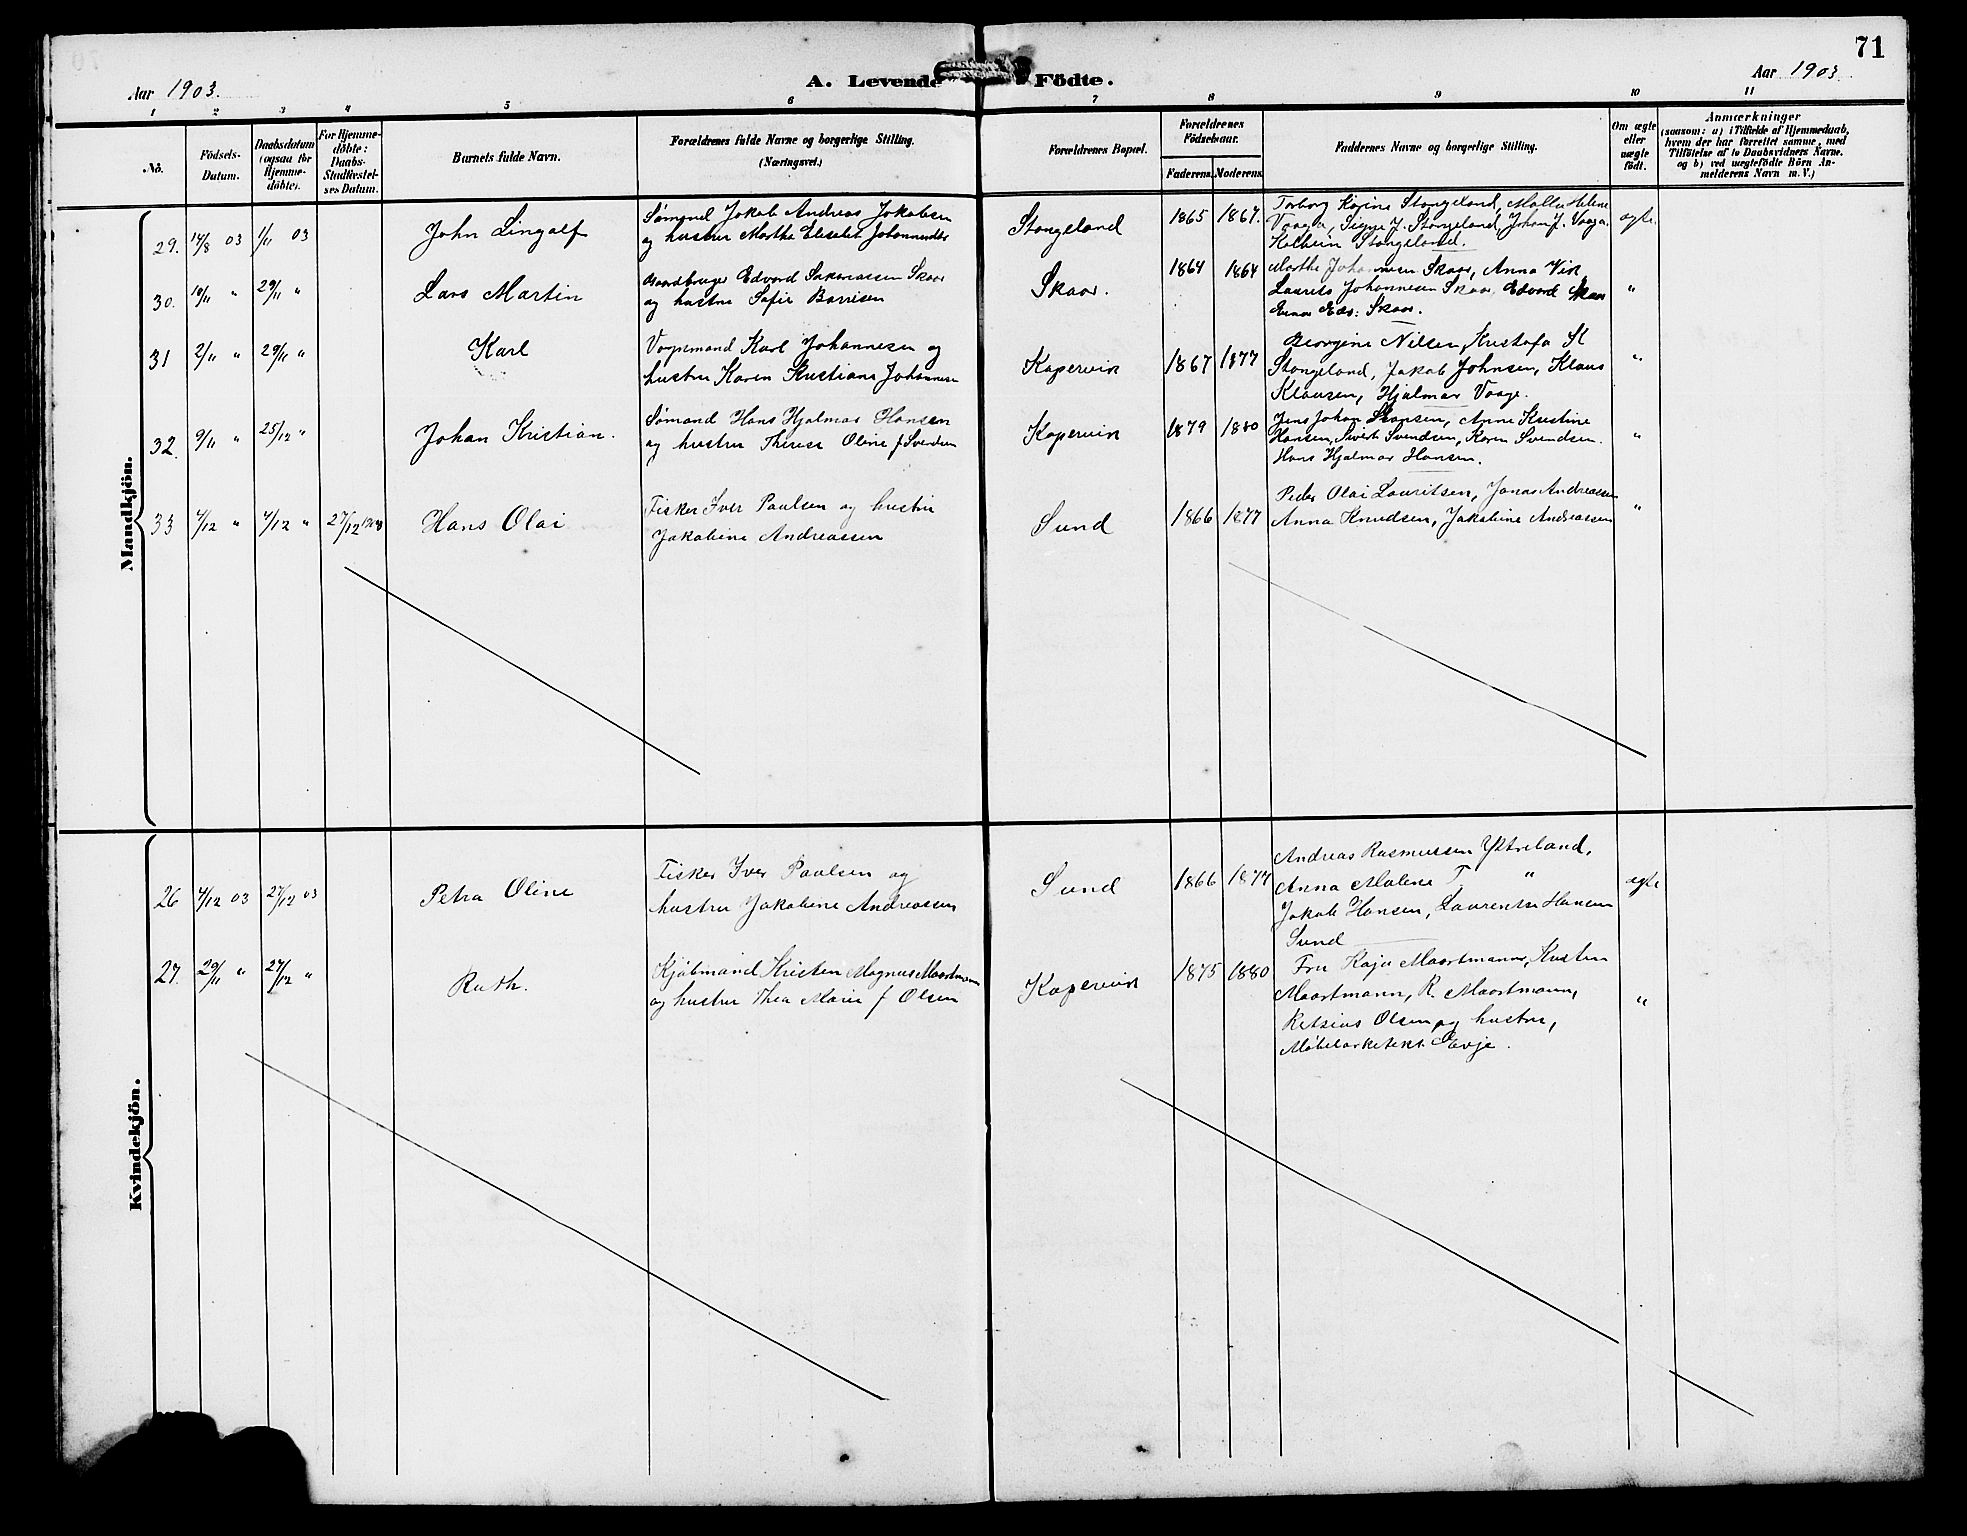 71
Aar 1903.
A. Levende Födte.
Aar 1903.
1 2 3 4 5 6 7 8 9 10 11
No.
Födsels-
Datum.
Daabsdatum
(ogsaa for
Hjemme-
döbte).
For Hjemme-
döbte:
Daabs-
Stadfæstel-
ses Datum.
Barnets fulde Navn.
Forældrenes fulde Navne og borgerlige Stilling.
(Næringsvei.)
Forældrenes Bopæl.
Forældrenes
Födselsaar.
Faderens. Moderens.
Faddernes Navne og borgerlige Stilling.
Om ægte
eller
uægte
födt.
Anmærkninger
(saasom: a) i Tilfælde af Hjemmedaab,
hvem der har forrettet samme, med
Tilföielse af to Daabsvidners Navne.
og b) ved uægtefödte Börn An-
melderens Navn m. V.)
Mandkjön.
29. 14/8 03 1/11 03
John Lingolf
Sømand Jakob Andreas Jakobsen
og hustru Martha Elisabet Johannesdtr
Stangeland
1865 1867.
Torborg Karine Stangeland, Malla Helene
Vaage, Signe J. Stangeland, Johan J. Vaage.
Kolbein Stangeland.
ægte.
30. 10/11 " 29/11 "
Lars Martin
Gaardbruger Edvard Sakariassen Skaar
og hustru Sofie Barrisen
Skaar.
1864 1864
Marthe Johannesen Skaar, Anna Vik
Laurits Johannesen Skaar, Edvard Skaar
Einar Edv. Skaar.
"
31 2/11 " 29/11 "
Karl
Vognmand Karl Johannesen og
hustru Karen Kristiane Johannesen
Kopervik
1867 1877
Georgine Nilsen, Kristofa St
Stangeland, Jakob Johnsen, Klaus
Klausen, Hjalmar Vaage.
"
32. 9/11 " 25/12 "
Johan Kristian.
Sømand Hans Hjalmar Hansen
og hustru Therese Oline f Svendsen
Kopervik
1879 1880
Jens Johan Hansen, Anne Kristine
Hansen, Sivert Svendsen, Karen Svendsen.
Hans Hjalmar Hansen.
"
33 4/12 " 4/12 " 27/12 1903
Hans Olai
Fisker Iver Paulsen og hustru
Jakobine Andreassen
Sund
1866 1877
Peder Olai Lauritsen, Jonas Andreassen
Anna Knudsen, Jakobine Andreassen
"
Kvindekjön.
26 4/12 03 27/12 03
Petra Oline
Fisker Iver Paulsen og
hustru Jakobine Andreassen
Sund
1866 1877
Andreas Rasmussen Ytreland,
Anna Malene T "
Jakob Hansen, Laurentse Hansen
Sund
ægte
27. 29/11 " 27/12 "
Ruth.
Kjøbmand Kristen Magnus Maartmann
og hustru Thea Marie f Olsen
Kopervik
1875 1880
Fru Kaja Maartmann, Kristen
Maartmann, R. Maartmann,
Retzius Olsen og hustru,
Møbelarkitekt Sævje.
"